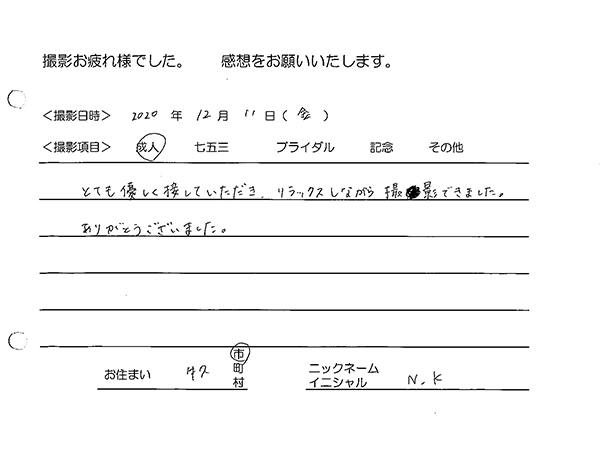 撮影お疲れ様でした。 感想をお願いいたします。
＜撮影日時＞ 2020 年 12 月 11 日 ( 金 )
＜撮影項目＞ 成人 七五三 ブライダル 記念 その他
とても優しく接していただき、リラックスしながら 撮影できました。
ありがとうございました。
お住まい 牛久 市 町 村 ニックネーム イニシャル N.K